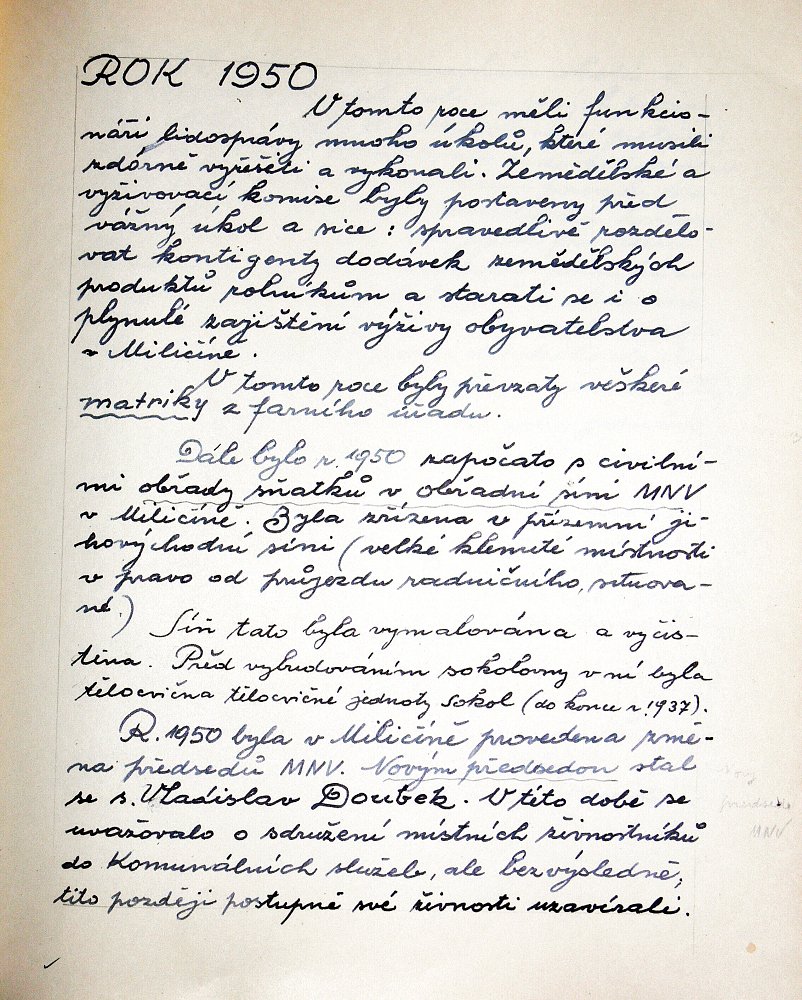 ROK 1950
V tomto roce měli funkcio-
náři lidosprávy mnoho úkolů, které musili
zdárně vyřešiti a vykonali. Zemědělské a
vyživovací komise byly postaveny před
vážný úkol a sice: spravedlivě rozdělo-
vat kontigenty dodávek zemědělských
produktů rolníkům a starati se i o
plynulé zajištění výživy obyvatelstva
v Miličíně.
V tomto roce byly převzaty veškeré
matriky z farního úřadu.
Dále bylo r. 1950 započato s civilní-
mi obřady sňatků v obřadní síni MNV
v Miličíně. Byla zřízena v přízemní ji-
hovýchodní síni (velké klenuté místnosti
v pravo od průjezdu radničního, situova-
né.)
Síň tato byla vymalována a vyčis-
těna. Před vybudováním sokolovny v ní byla
tělocvična tělocvičné jednoty Sokol (do konce r. 1937).
R. 1950 byla v Miličíně provedena změ-
na předsedů MNV. Novým předsedou stal
se s. Vladislav Doubek. V této době se
uvažovalo o sdružení místních živnostníků
do Komunálních služeb, ale bezvýsledně,
tito později postupně své živnosti uzavírali.
předseda
MNV